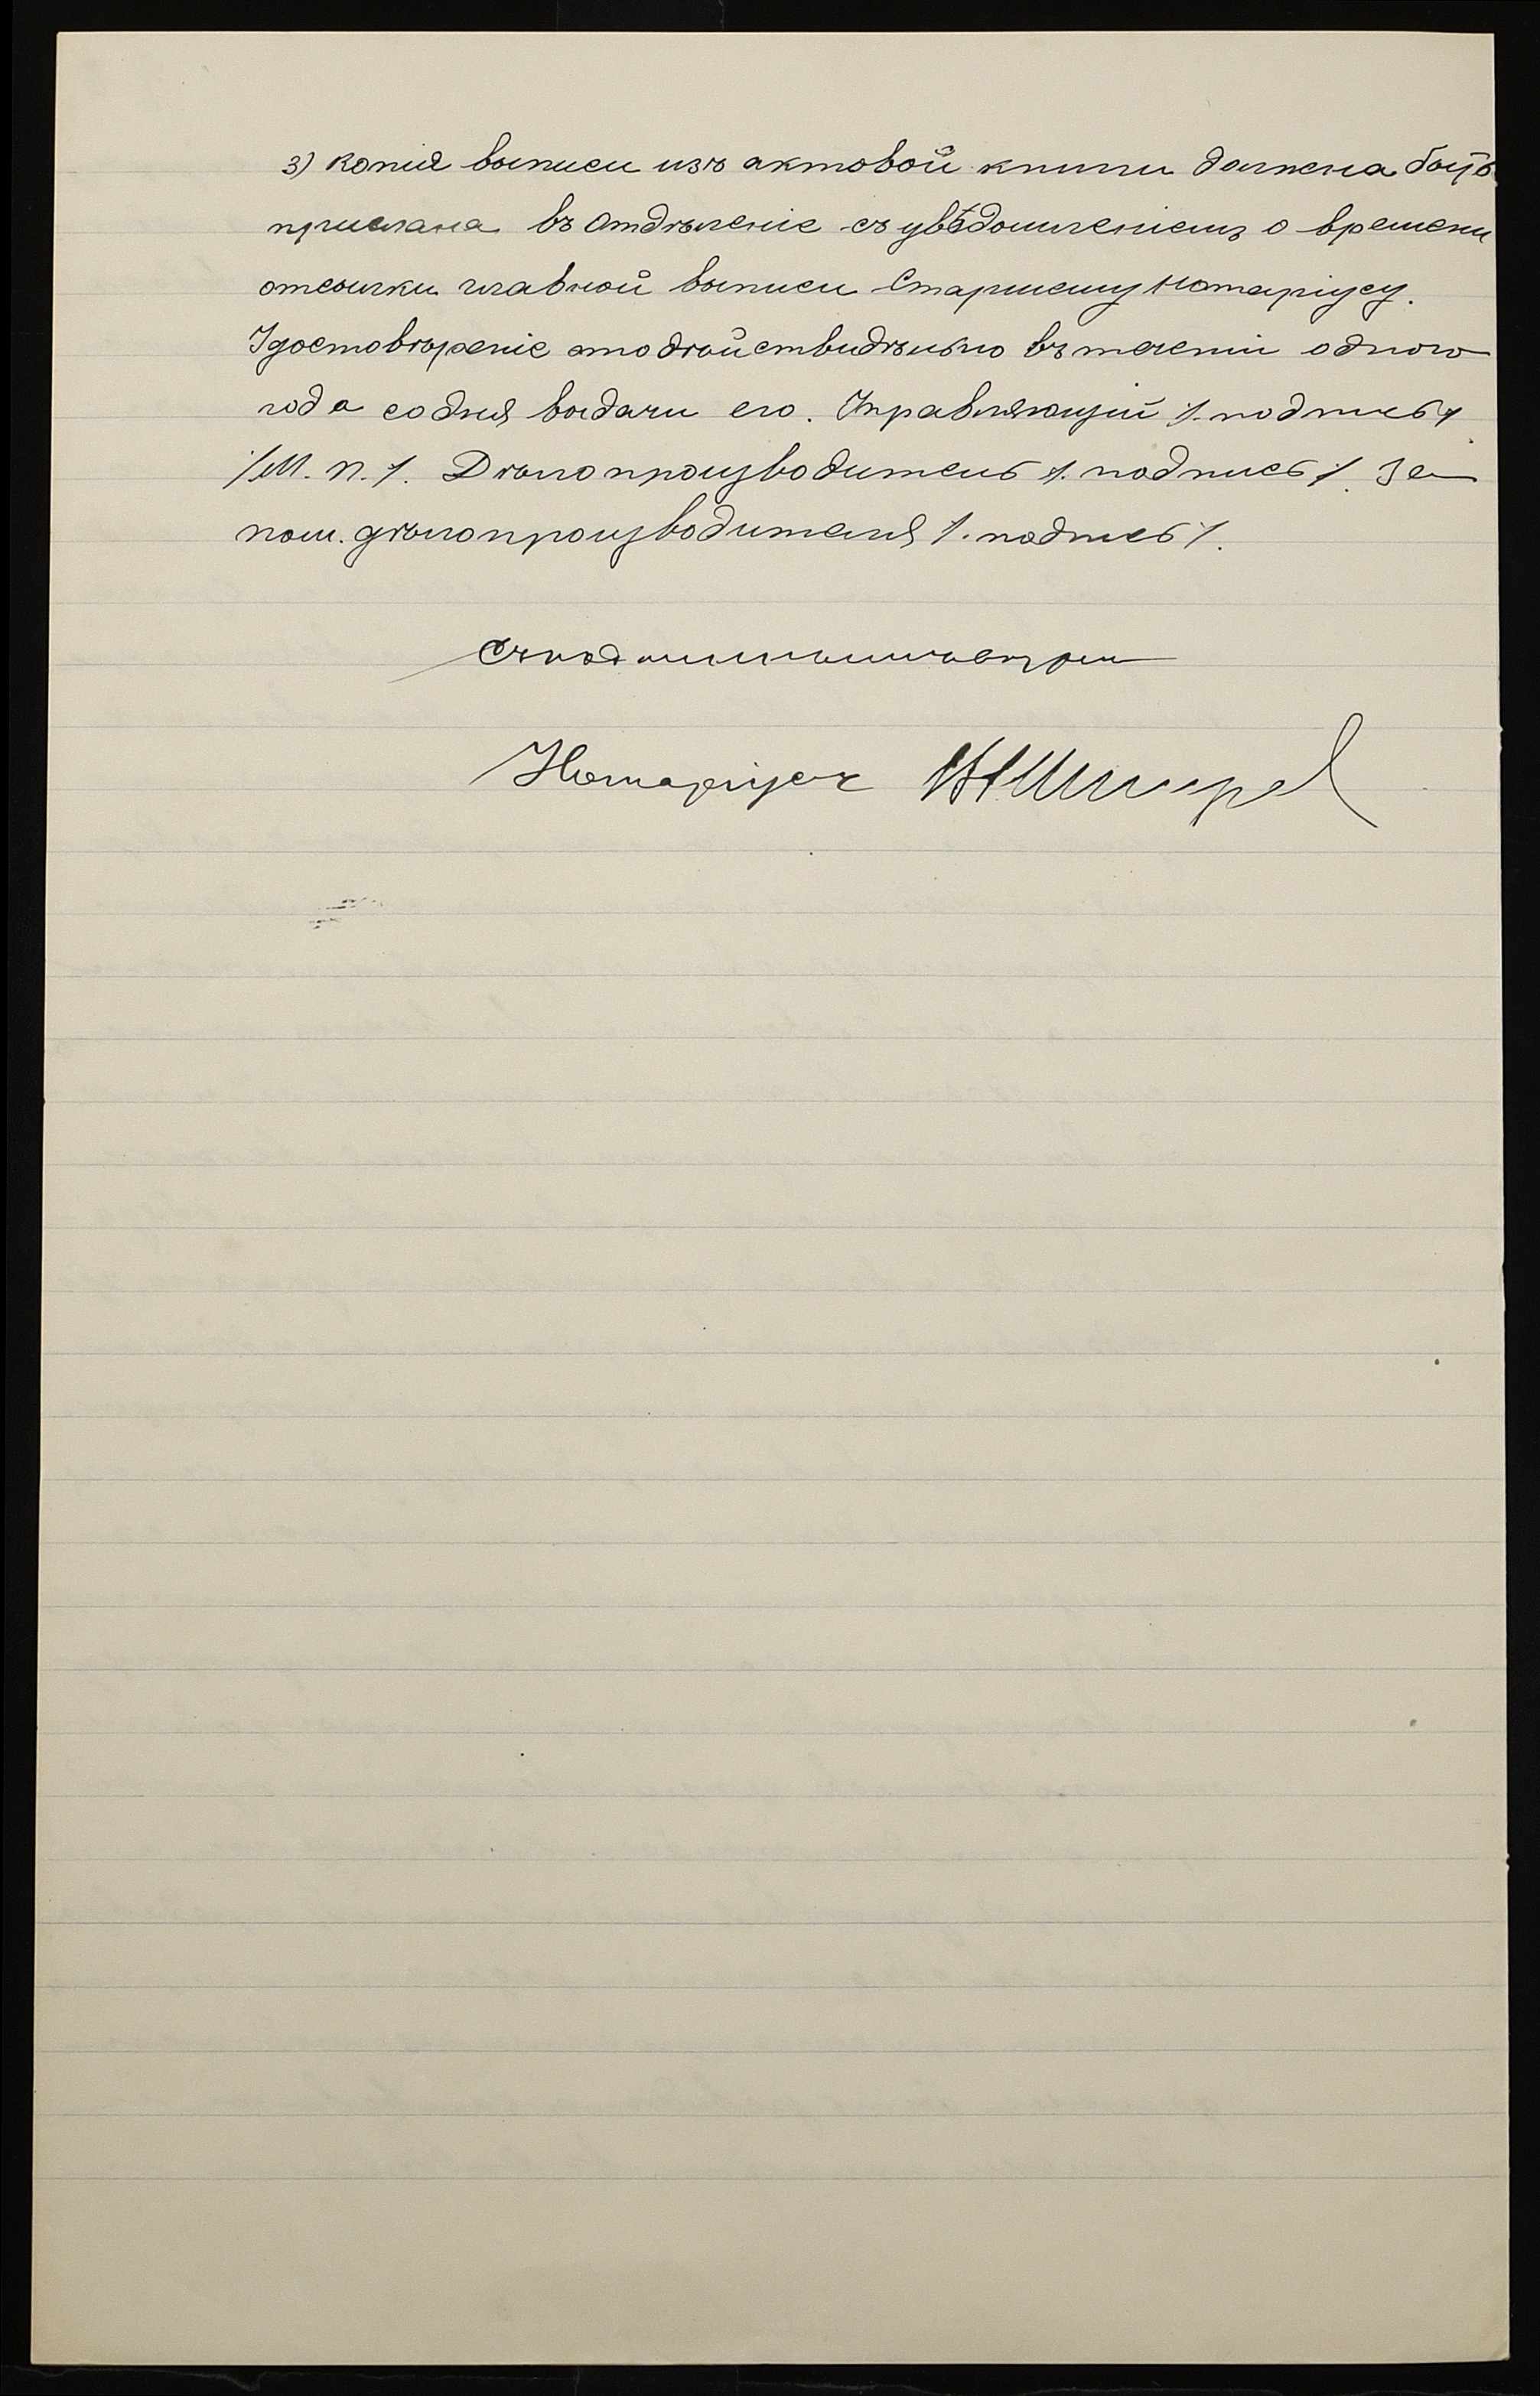 3) копія выписи изъ актовой книги должна быть
прислана въ отдѣленіе съ увѣдомленіемъ о времени
отсылки главной выписи Старшему Нотаріусу.
Удостовѣреніе это дѣйствидѣльно въ теченіи одного
года со дня выдачи его. Управляющій /. подпись /.
/. М. П. /. Дѣлопроизводитель /. подпись /. За
пом. дѣлопроизводителя /. подпись /.
Съ подлиннымъ вѣрно
Нотаріусъ